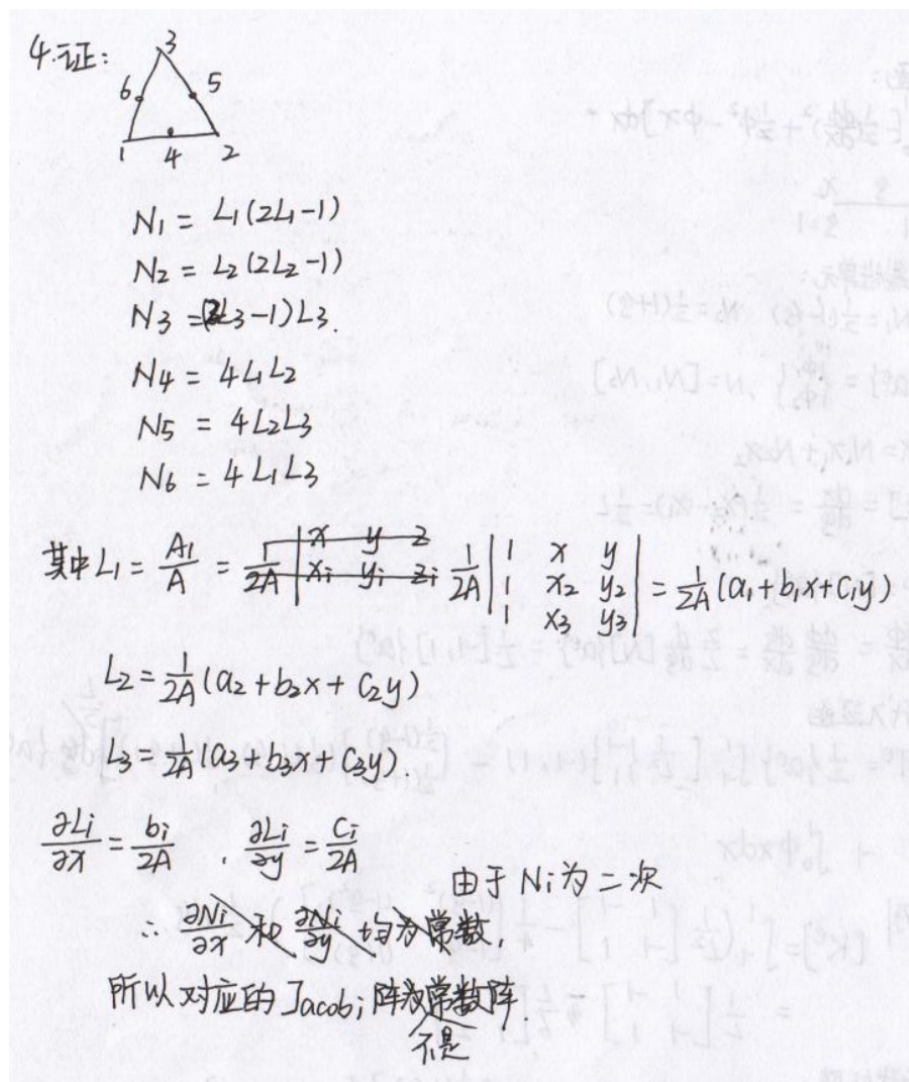 4.证:
3
6 5
1 4 2
N1 = L1(2L1-1)
N2 = L2(2L2-1)
N3 = (2L3-1)L3.
N4 = 4L1L2
N5 = 4L2L3
N6 = 4L1L3
其中L1 = A1/A = 1/2A |x y z; xi yi zi 1/2A |1 x y; 1 x2 y2; 1 x3 y3| = 1/2A (a1+b1x+c1y)
L2 = 1/2A (a2+b2x+c2y)
L3 = 1/2A (a3+b3x+c3y).
∂Li/∂x = bi/2A . ∂Li/∂y = ci/2A
由于Ni为二次
∴ ∂Ni/∂x 和 ∂Ni/∂y 均为常数,
所以对应的Jacobi阵为常数阵.
不是